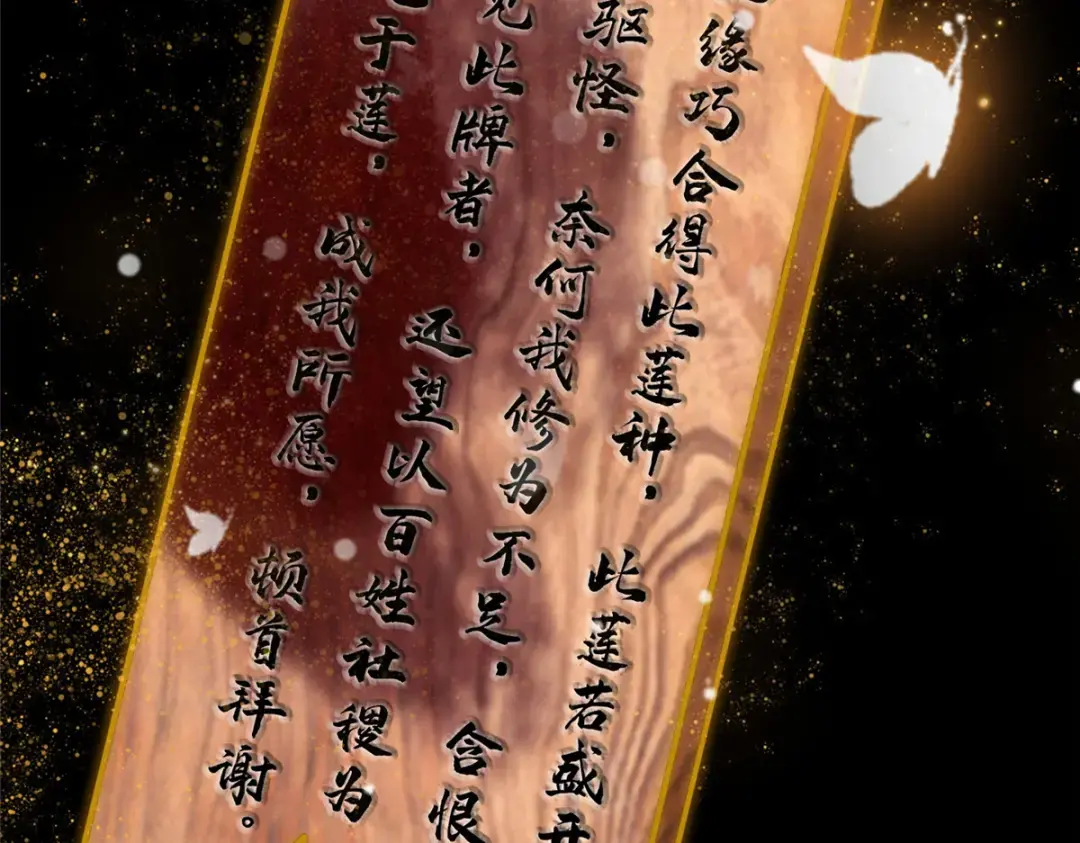 缘巧合得此莲种，此莲若盛开
驱怪，奈何我修为不足，含恨
见此牌者，还望以百姓社稷为
于莲，成我所愿，顿首拜谢。